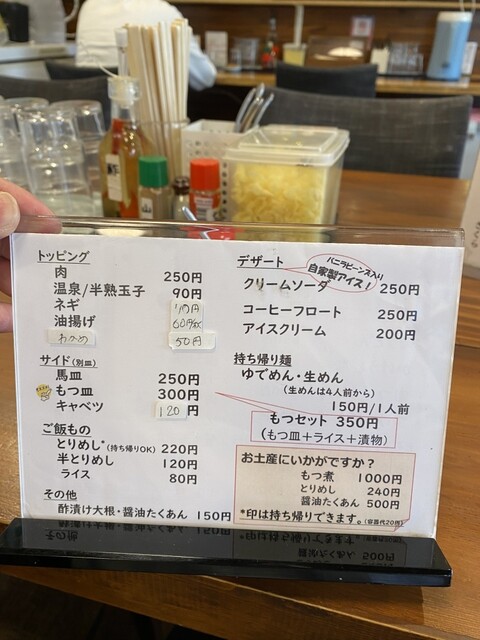 トッピング
肉 250円
温泉/半熟玉子 90円
ネギ
油揚げ
わかめ 50円
サイド(別皿)
馬皿 250円
もつ皿 300円
キャベツ 120円
ご飯もの
とりめし*(持ち帰りOK) 220円
半とりめし 120円
ライス 80円
その他
酢漬け大根・醤油たくあん 150円
デザート
バニラビーンズ入り
自家製アイス!
クリームソーダ 250円
コーヒーフロート 250円
アイスクリーム 200円
持ち帰り麺
ゆでめん・生めん
(生めんは4人前から)
150円/1人前
もつセット 350円
(もつ皿+ライス+漬物)
お土産にいかがですか?
もつ煮 1000円
とりめし 240円
醤油たくあん 500円
*印は持ち帰りできます。(容器代20円)
酢
山